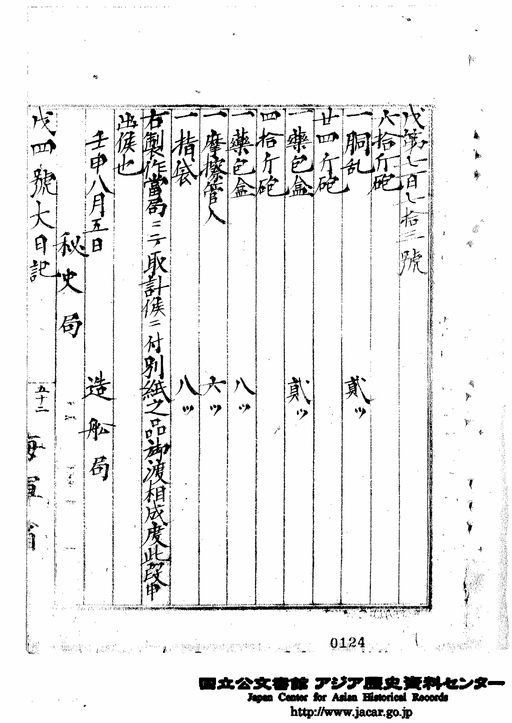 戊第七百七拾三號
八拾斤砲
一胴乱 貳ッ
廿四斤砲
一藥包盒 貳ッ
四拾斤砲
一藥包盒 八ッ
一摩擦管入 六ッ
一指袋 八ッ
右製作當局ニ而取計候ニ付別紙之品御渡相成度此段申
出候也
壬申八月五日 造舩局
秘史局
戊四號大日記 五十三 海軍省
0124
国立公文書館 アジア歴史資料センター
Japan Center for Asian Historical Records
http://www.jacar.go.jp